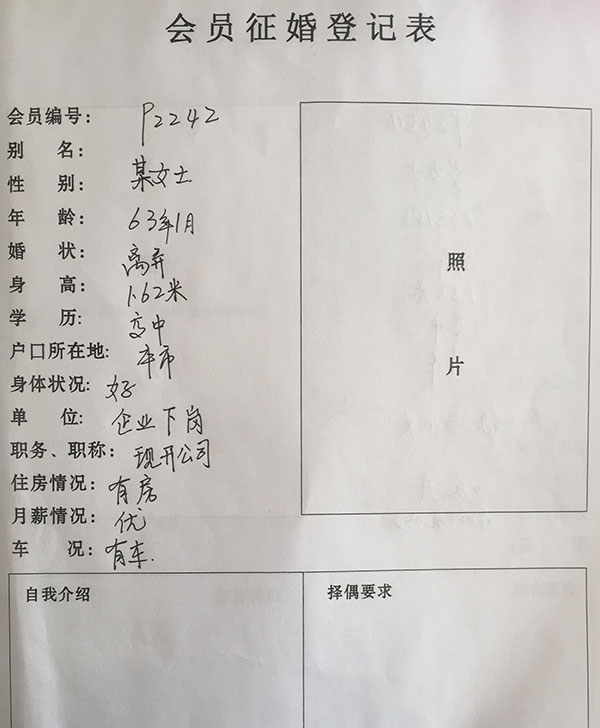 会员征婚登记表
会员编号: P2242
别 名:
性 别: 某女士
年 龄: 63年1月
婚 状: 离异
身 高: 1.62米
学 历: 高中
户口所在地: 本市
身体状况: 好
单 位: 企业下岗
职务、职称: 现开公司
住房情况: 有房
月薪情况: 优
车 况: 有车.
照
片
自我介绍 择偶要求